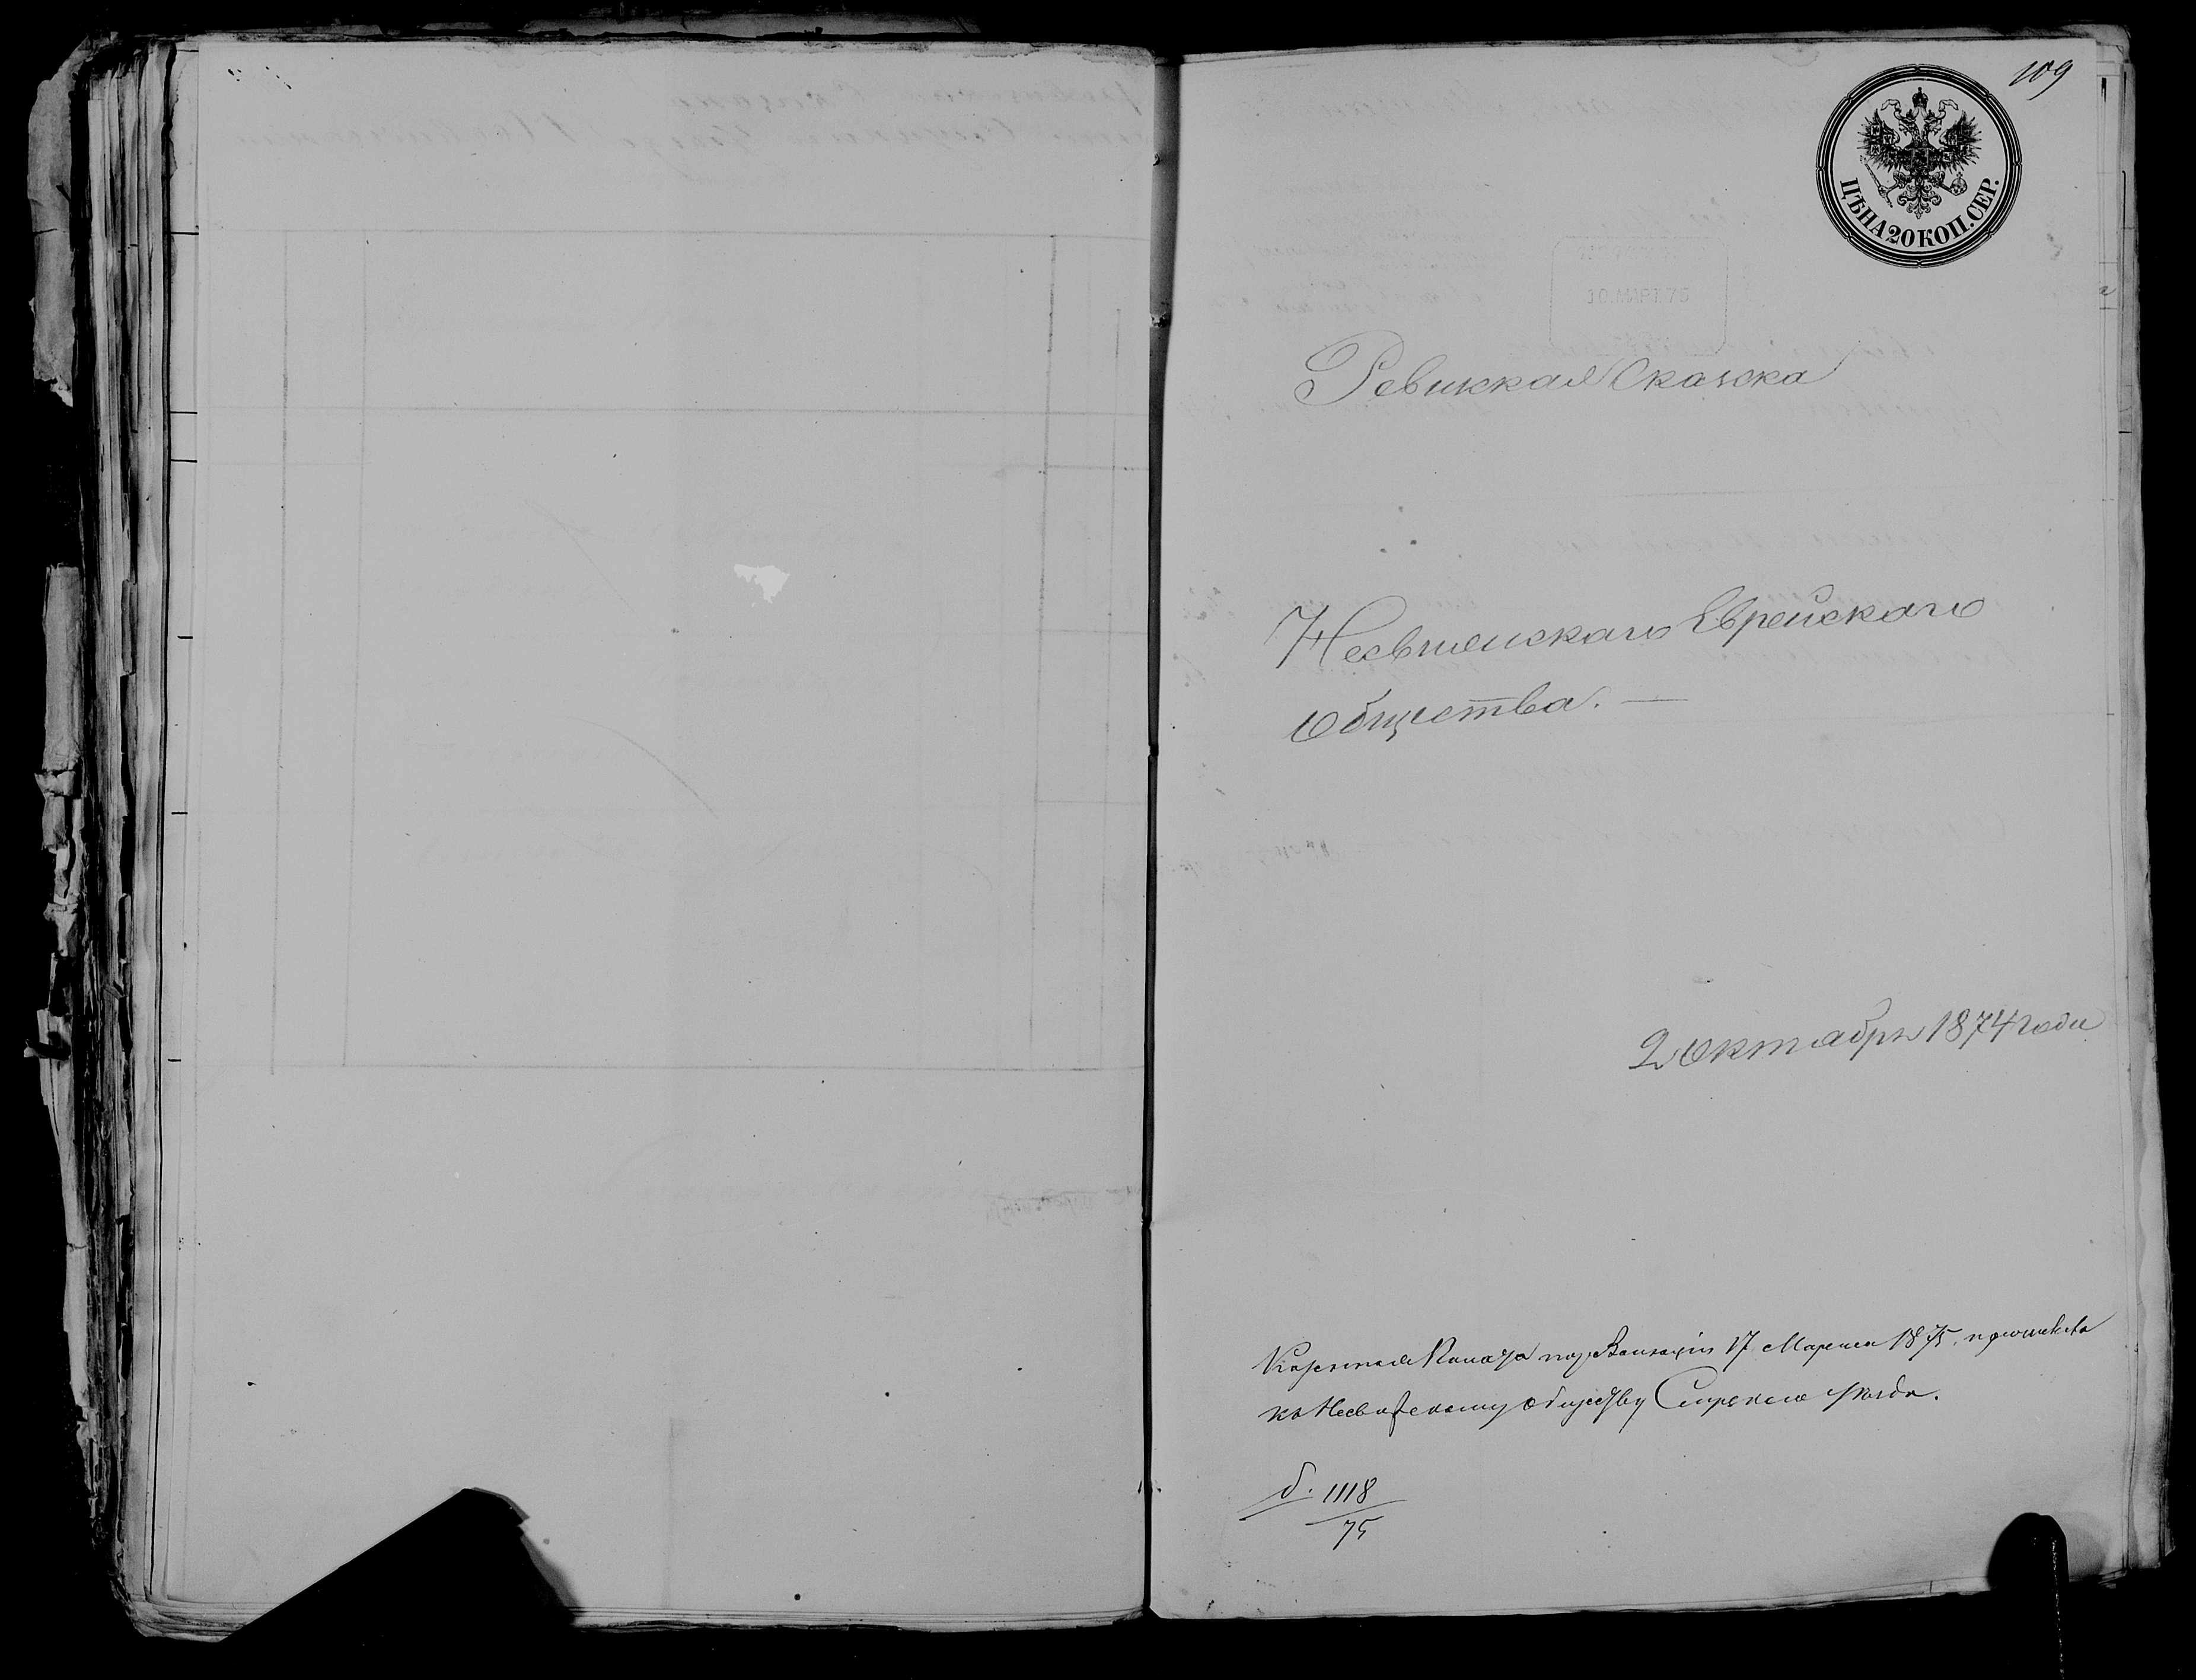 109
ЦѢНА 20 КОП. СЕР.
10 МАРТ 75
Ревижкая Сказска
Несвижскаго Еврейскаго
Общества. —
2 Октабря 1874 года
Казенная Палата 17 Марта 1875.
къ Несвижскому обществу Слуцкаго уѣзда.
б. 1118
75